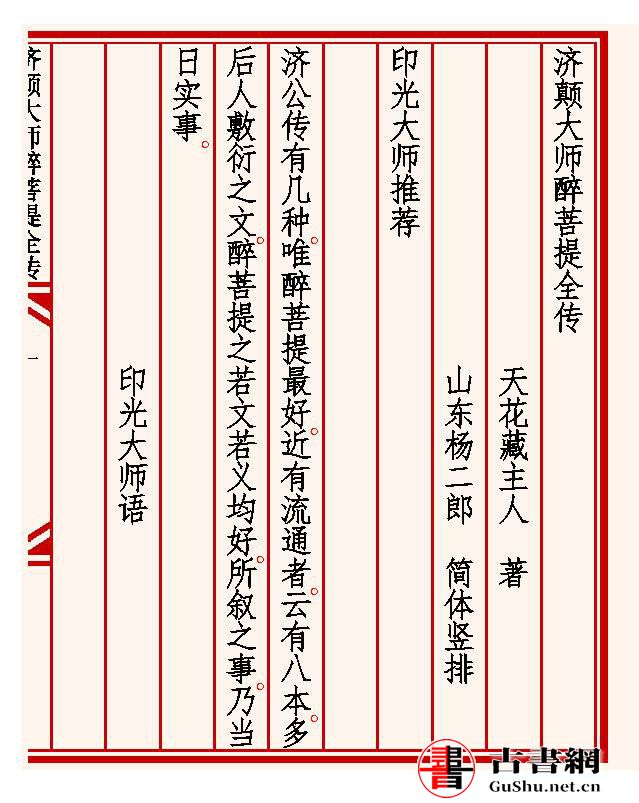 济颠大师醉菩提全传
天花藏主人 著
山东杨二郎 简体竖排
印光大师推荐
济公传有几种。唯醉菩提最好。近有流通者。云有八本。多
后人敷衍之文。醉菩提之若文若义均好。所叙之事。乃当
日实事。
印光大师语
济颠大师醉菩提全传
一
書 古書網
GuShu.net.cn